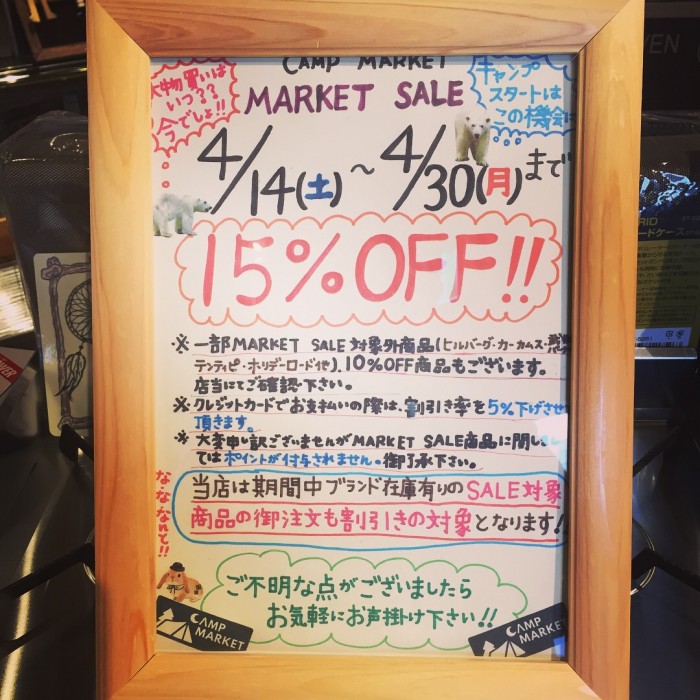 CAMP MARKET
MARKET SALE
大物買いは
いつ??
今でしょ!!
キャンプ
スタートは
この機会に
4/14(土)～4/30(月)まで
15%OFF!!
※一部MARKET SALE対象外商品(ヒルバーグ・カーカムス・
テンティピ・ホリデーロード他)、10%OFF商品もございます。
店当にてご確認下さい。
※クレジットカードでお支払いの際は、割引き率を5%下げさせ
頂きます。
※大変申し訳ございませんがMARKET SALE商品に関しまし
てはポイントが付与されません。御了承下さい。
な・な・なんと!!
当店は期間中ブランド在庫有りのSALE対象
商品の御注文も割引きの対象となります!!
ご不明な点がございましたら
お気軽にお声掛け下さい!!
CAMP
MARKET
CAMP
MARKET
VEN
RID
ードケース